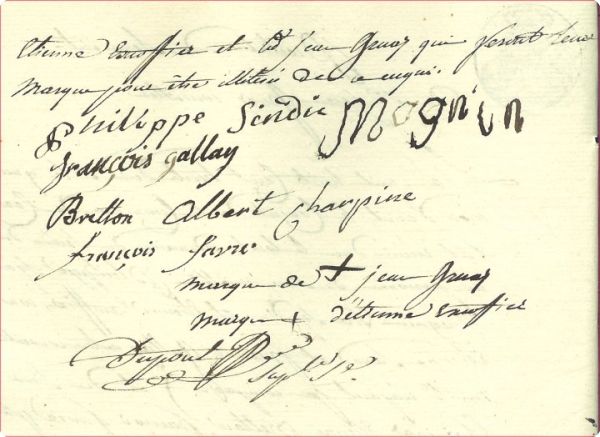 et jean Gruaz qui feront leur
Marque pour être illitéré de ce enqui.
Philippe Sindic Mognin
françois gallay
Bretton Albert Charpine
françois favre
marque de + jean Gruaz
marque + d'étienne
Dupont